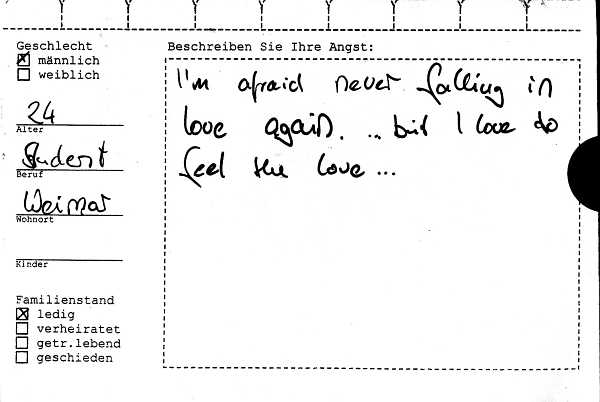 Geschlecht
männlich
weiblich
24
Alter
Student
Beruf
Weimar
Wohnort
Kinder
Familienstand
ledig
verheiratet
getr.lebend
geschieden
Beschreiben Sie Ihre Angst:
I'm afraid never falling in
love again. ... but I love do
feel the love ...